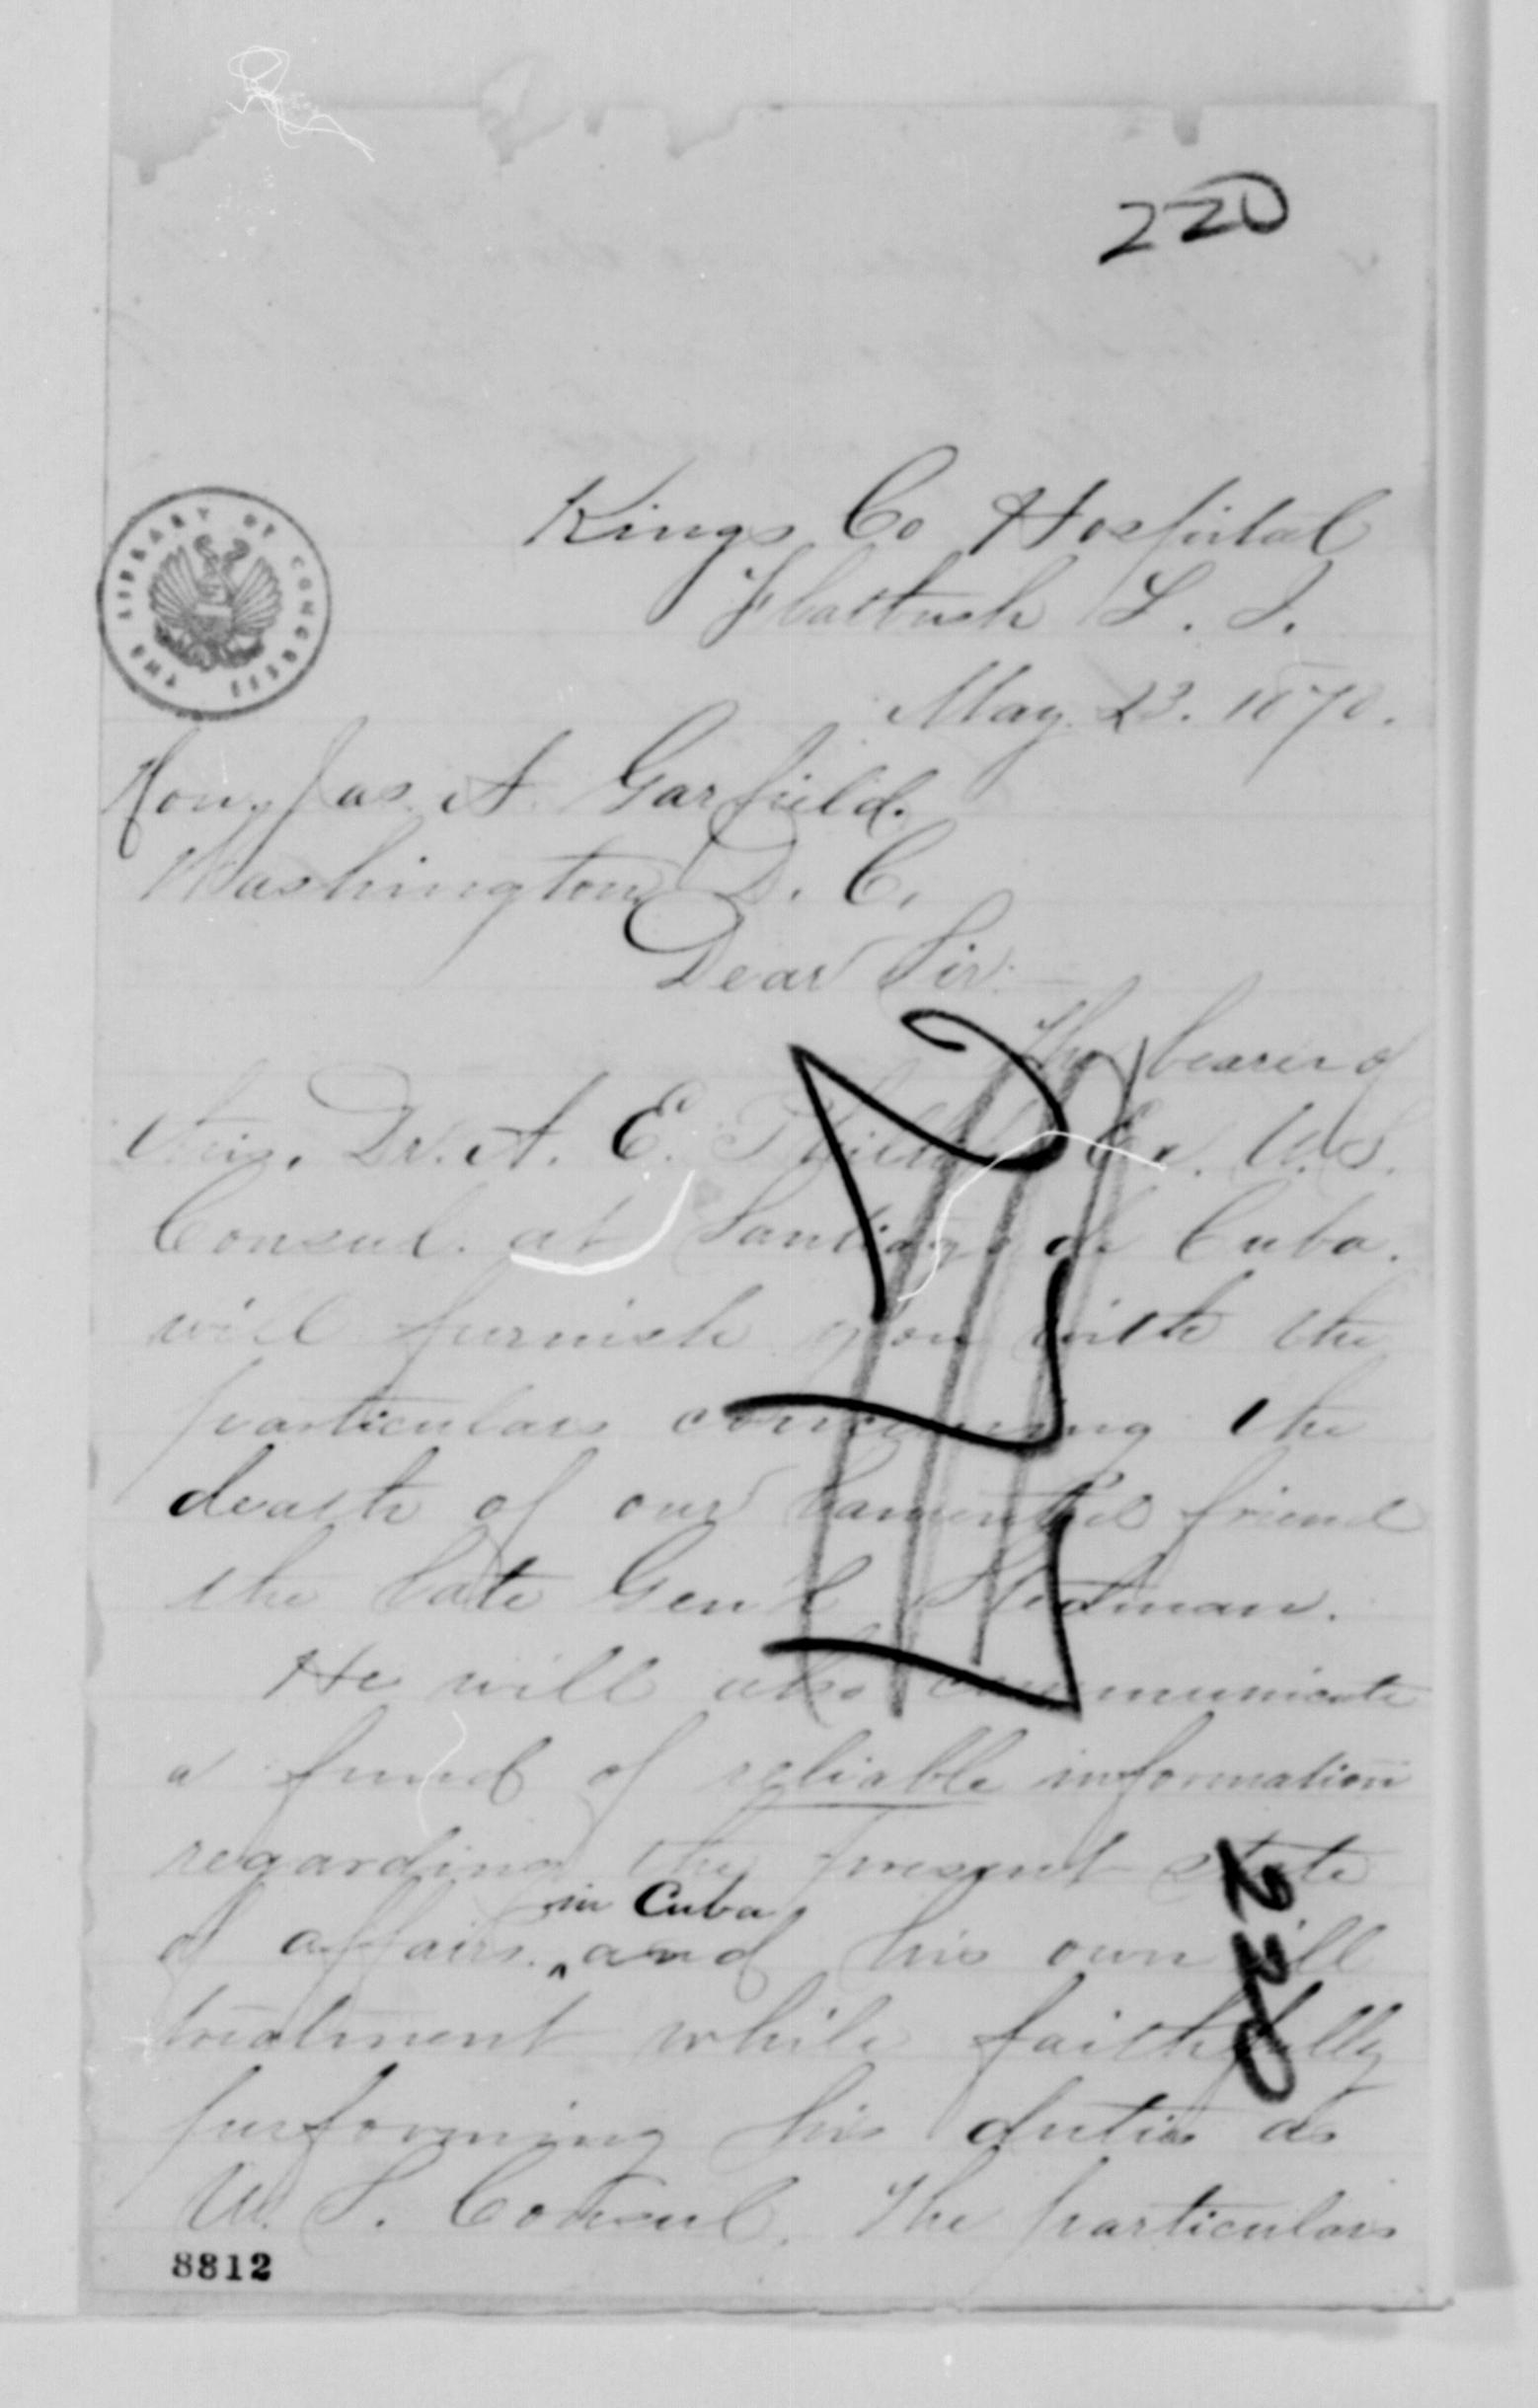 220
Kings Co Hospital
Flatbush L. I.
THE LIBRARY OF CONGRESS
May 23. 1870.
Hon. Jas. A. Garfield.
Washington D. C.
Dear Sir:—
The bearer of
this. Dr. A. E. Phillips Ex. U.S.
Consul. at Santiago de Cuba.
will furnish you with the
particulars concerning the
death of our lamented friend
the late Gen'l Stedman.
He will also communicate
a fund of reliable information
regarding the present state
in Cuba
of affairs. ‸ and his own ill
treatment while faithfully
220
performing his duties as
U. S. Consul. The particulars
8812